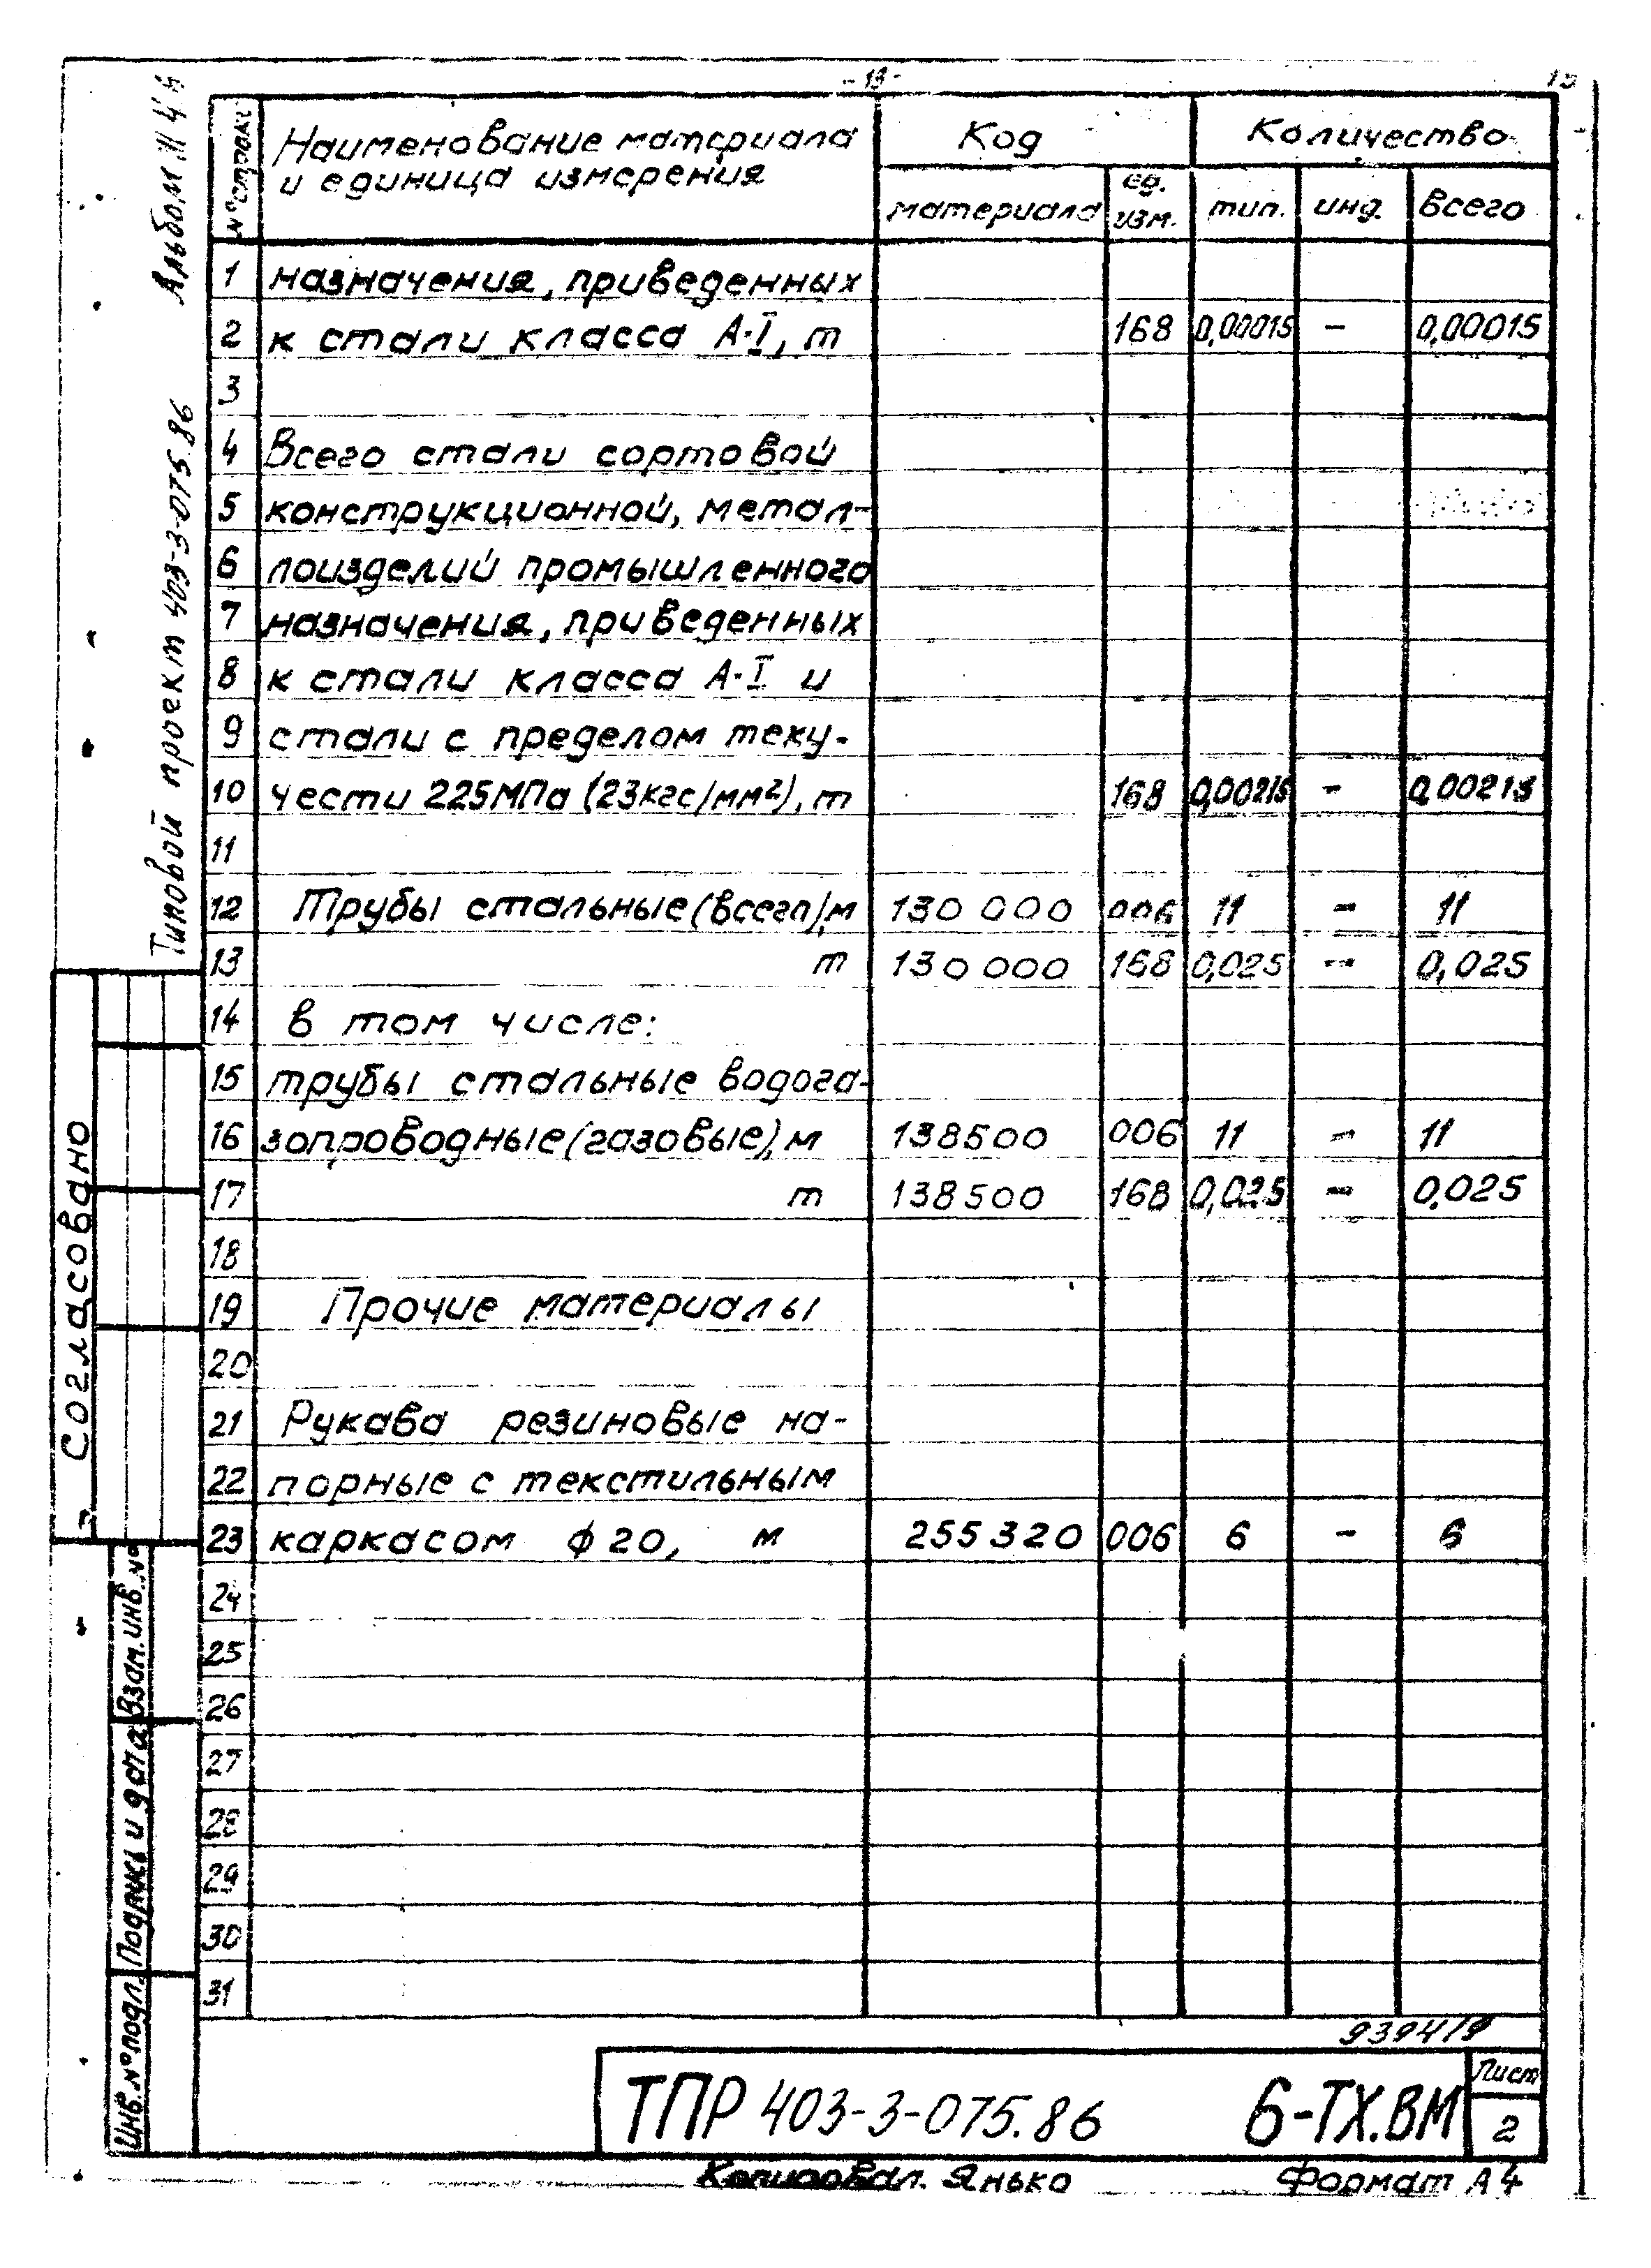 - 13 -
Типовой проект 403-3-075.86 Альбом
№ строки Наименование материала и единица измерения Код Количество
материала ед. изм. тип. инд. Всего
1 назначения, приведенных
2 к стали класса А-I, т 168 0,00015 – 0,00015
3
4 Всего стали сортовой
5 конструкционной, метал-
6 лоизделий промышленного
7 назначения, приведенных
8 к стали класса А-I и
9 стали с пределом теку-
10 чести 225МПа (23кгс/мм²), т 168 0,00215 – 0,00215
11
12 Трубы стальные (всего), м 130 000 006 11 – 11
13 т 130 000 168 0,025 – 0,025
14 в том числе:
15 трубы стальные водога-
16 зопроводные (газовые), м 138500 006 11 – 11
17 т 138500 168 0,025 – 0,025
18
19 Прочие материалы
20
21 Рукава резиновые на-
22 порные с текстильным
23 каркасом ф 20, м 255320 006 6 – 6
24
25
26
27
28
29
30
31
Согласовано
Взам. инв. №
Подпись и дата
Инв. № подл.
9394/9
ТПР 403-3-075.86 6-ТХ.ВМ
Лист
2
Копировал. Янько Формат А4